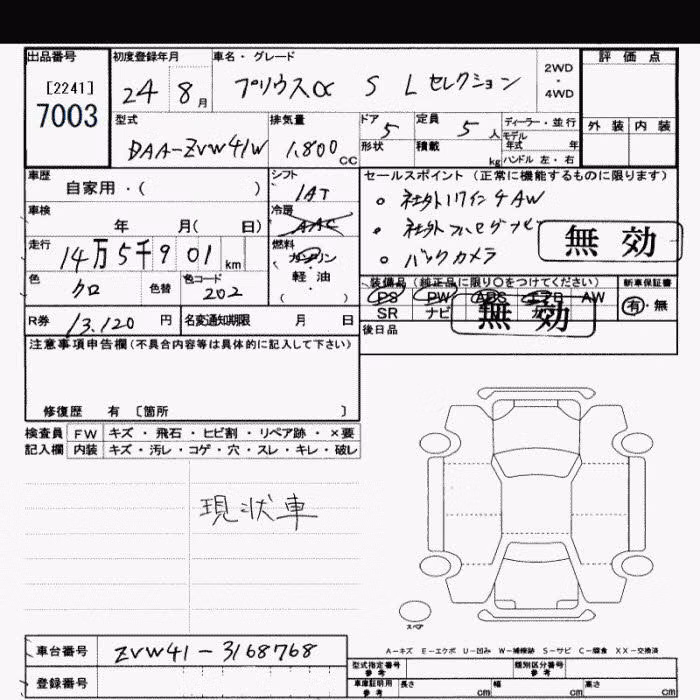 出品番号 初度登録年月 車名・グレード 評価点
[2241] 24 8月 プリウスα S Lセレクション 2WD・4WD
7003
型式 排気量 ドア 定員 ディーラー・並行
DAA-ZVW41W 1,800CC 5 5人 モデル年式 年 外装 内装
形状 積載 kg ハンドル 左・右
車歴 シフト セールスポイント(正常に機能するものに限ります)
自家用・( ) IAT
車検 冷房 ・社外17インチAW
年 月( 日) AAC ・社外フルセグナビ
走行 燃料 無効
14万5千901km ガソリン・軽油 ( ) ・バックカメラ
色 色替 色コード 装備品(純正品に限り〇をつけてください) 新車保証書
クロ 202 PS PW ABS エアロ AW 有・無
SR ナビ 無効
R券 13,120円 名変通知期限 月 日 後日品
注意事項申告欄(不具合内容等は具体的に記入して下さい)
修復歴 有 〔箇所 〕
検査員 FW キズ・飛石・ヒビ割・リペア跡・×要
記入欄 内装 キズ・汚レ・コゲ・穴・スレ・キレ・破レ
現状車
スペア
A-キズ E-エクボ U-凹み W-補修跡 S-サビ C-腐食 XX-交換済
車台番号 ZVW41-3168768 型式指定番号 参考 類別区分番号 参考
登録番号 車庫証明用 参考 長さ cm 幅 cm 高さ cm